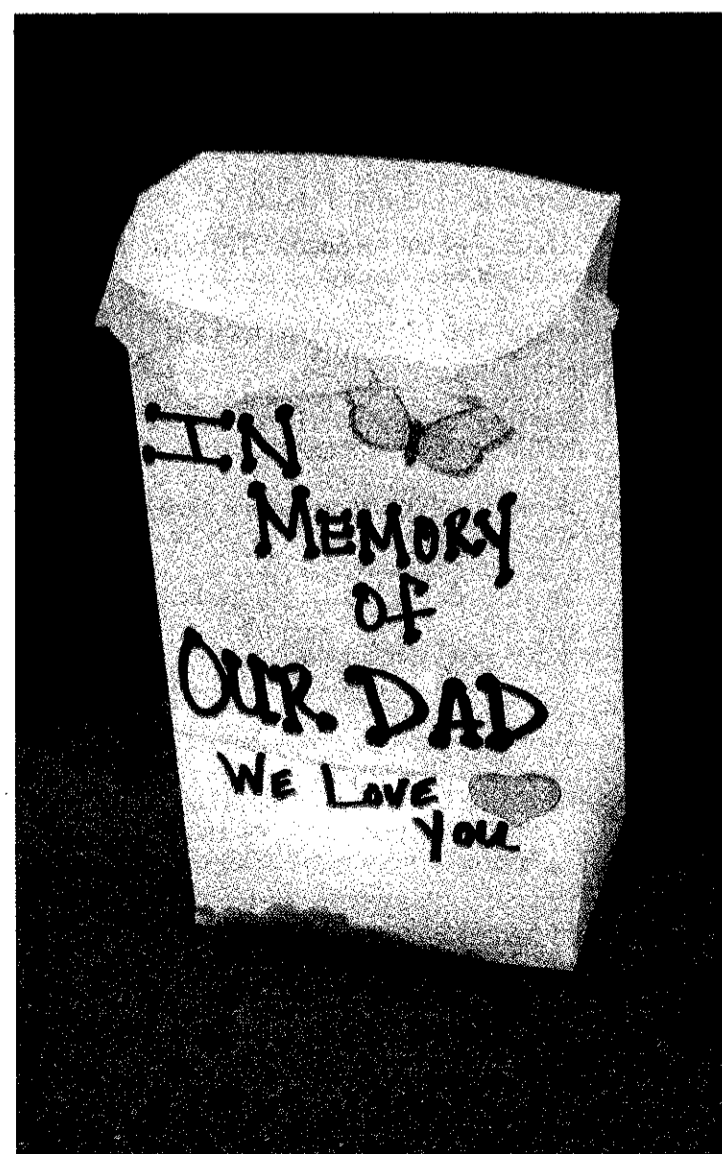 IN
MEMORY
OF
OUR DAD
WE LOVE
YOU